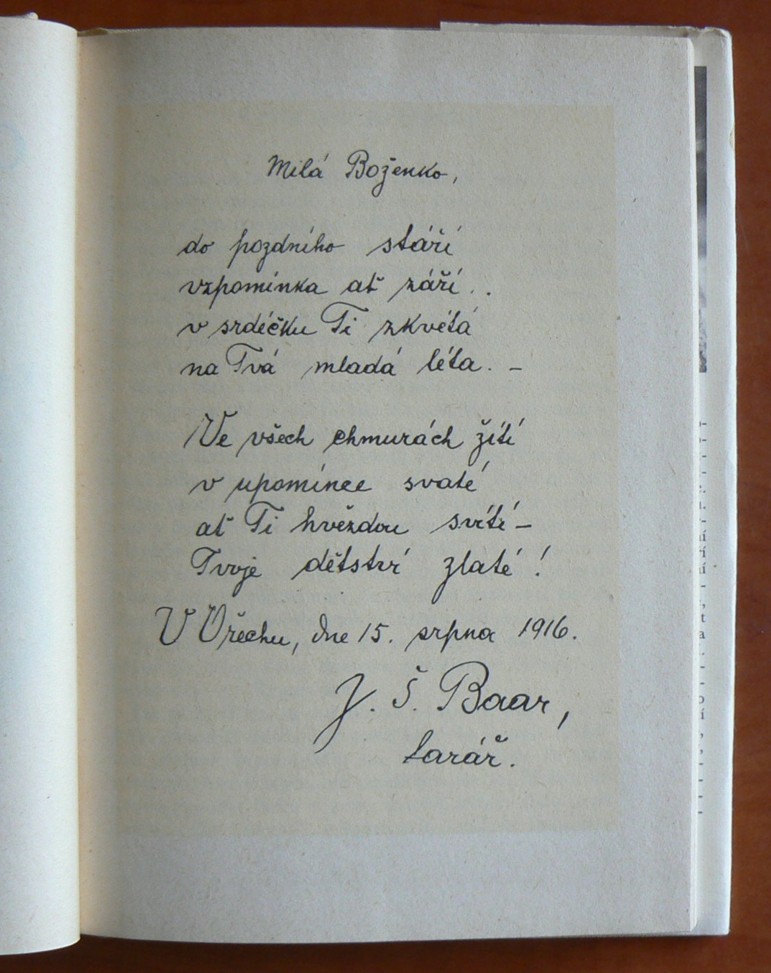 Milá Boženko,
do pozdního stáří
vzpomínka ať září..
v srdéčku Ti zkvétá
na Tvá mladá léta. –
Ve všech chmurách žití
v upomínce svaté
ať Ti hvězdou svítí –
Tvoje dětství zlaté!
V Ořechu, dne 15. srpna 1916.
J. Š. Baar,
farář.